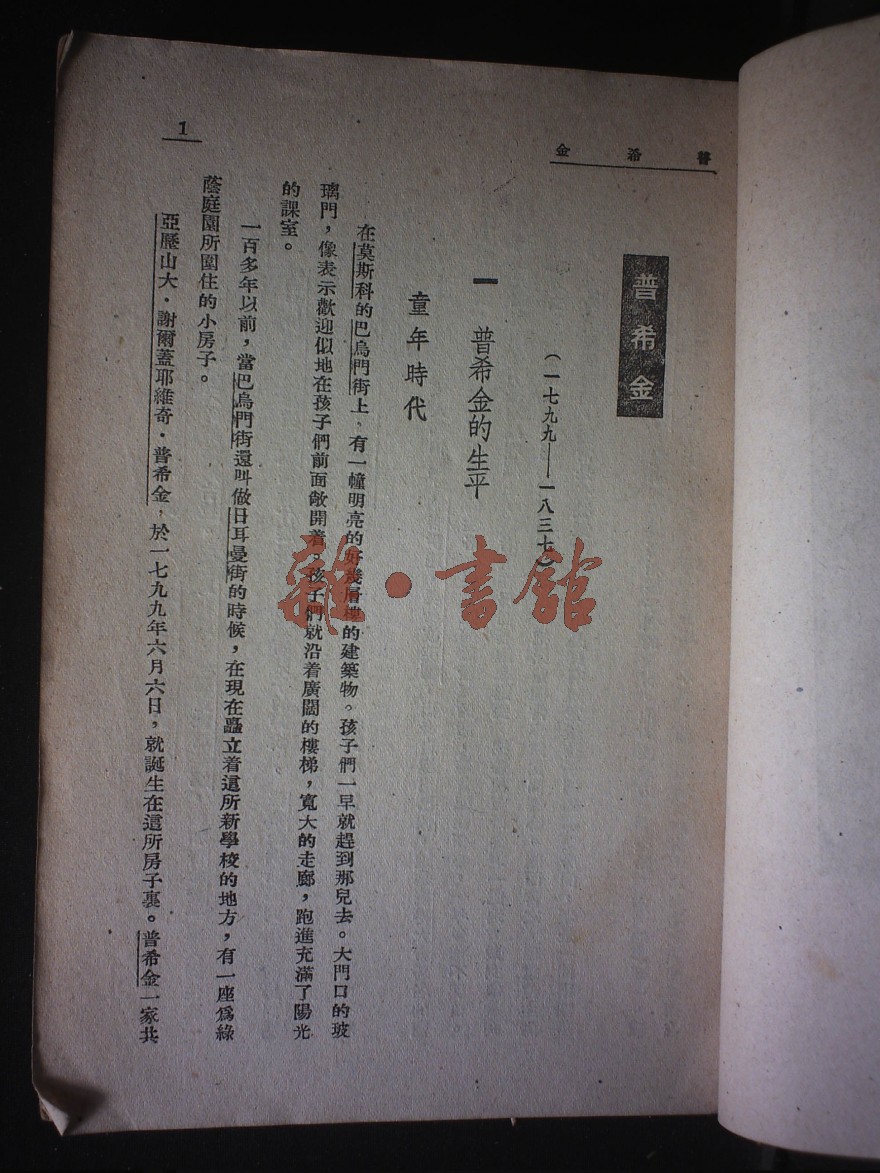 普希金
1
普希金
（一七九九——一八三七）
一 普希金的生平
童年時代
在莫斯科的巴烏門街上，有一幢明亮的好幾層樓的建築物。孩子們一早就趕到那兒去。大門口的玻
璃門，像表示歡迎似地在孩子們前面敞開着。孩子們就沿着廣闊的樓梯，寬大的走廊，跑進充滿了陽光
的課室。
一百多年以前，當巴烏門街還叫做日耳曼街的時候，在現在矗立着這所新學校的地方，有一座爲綠
蔭庭園所圍住的小房子。
亞歷山大·謝爾蓋耶維奇·普希金，於一七九九年六月六日，就誕生在這所房子裏。普希金一家共
龍·書館